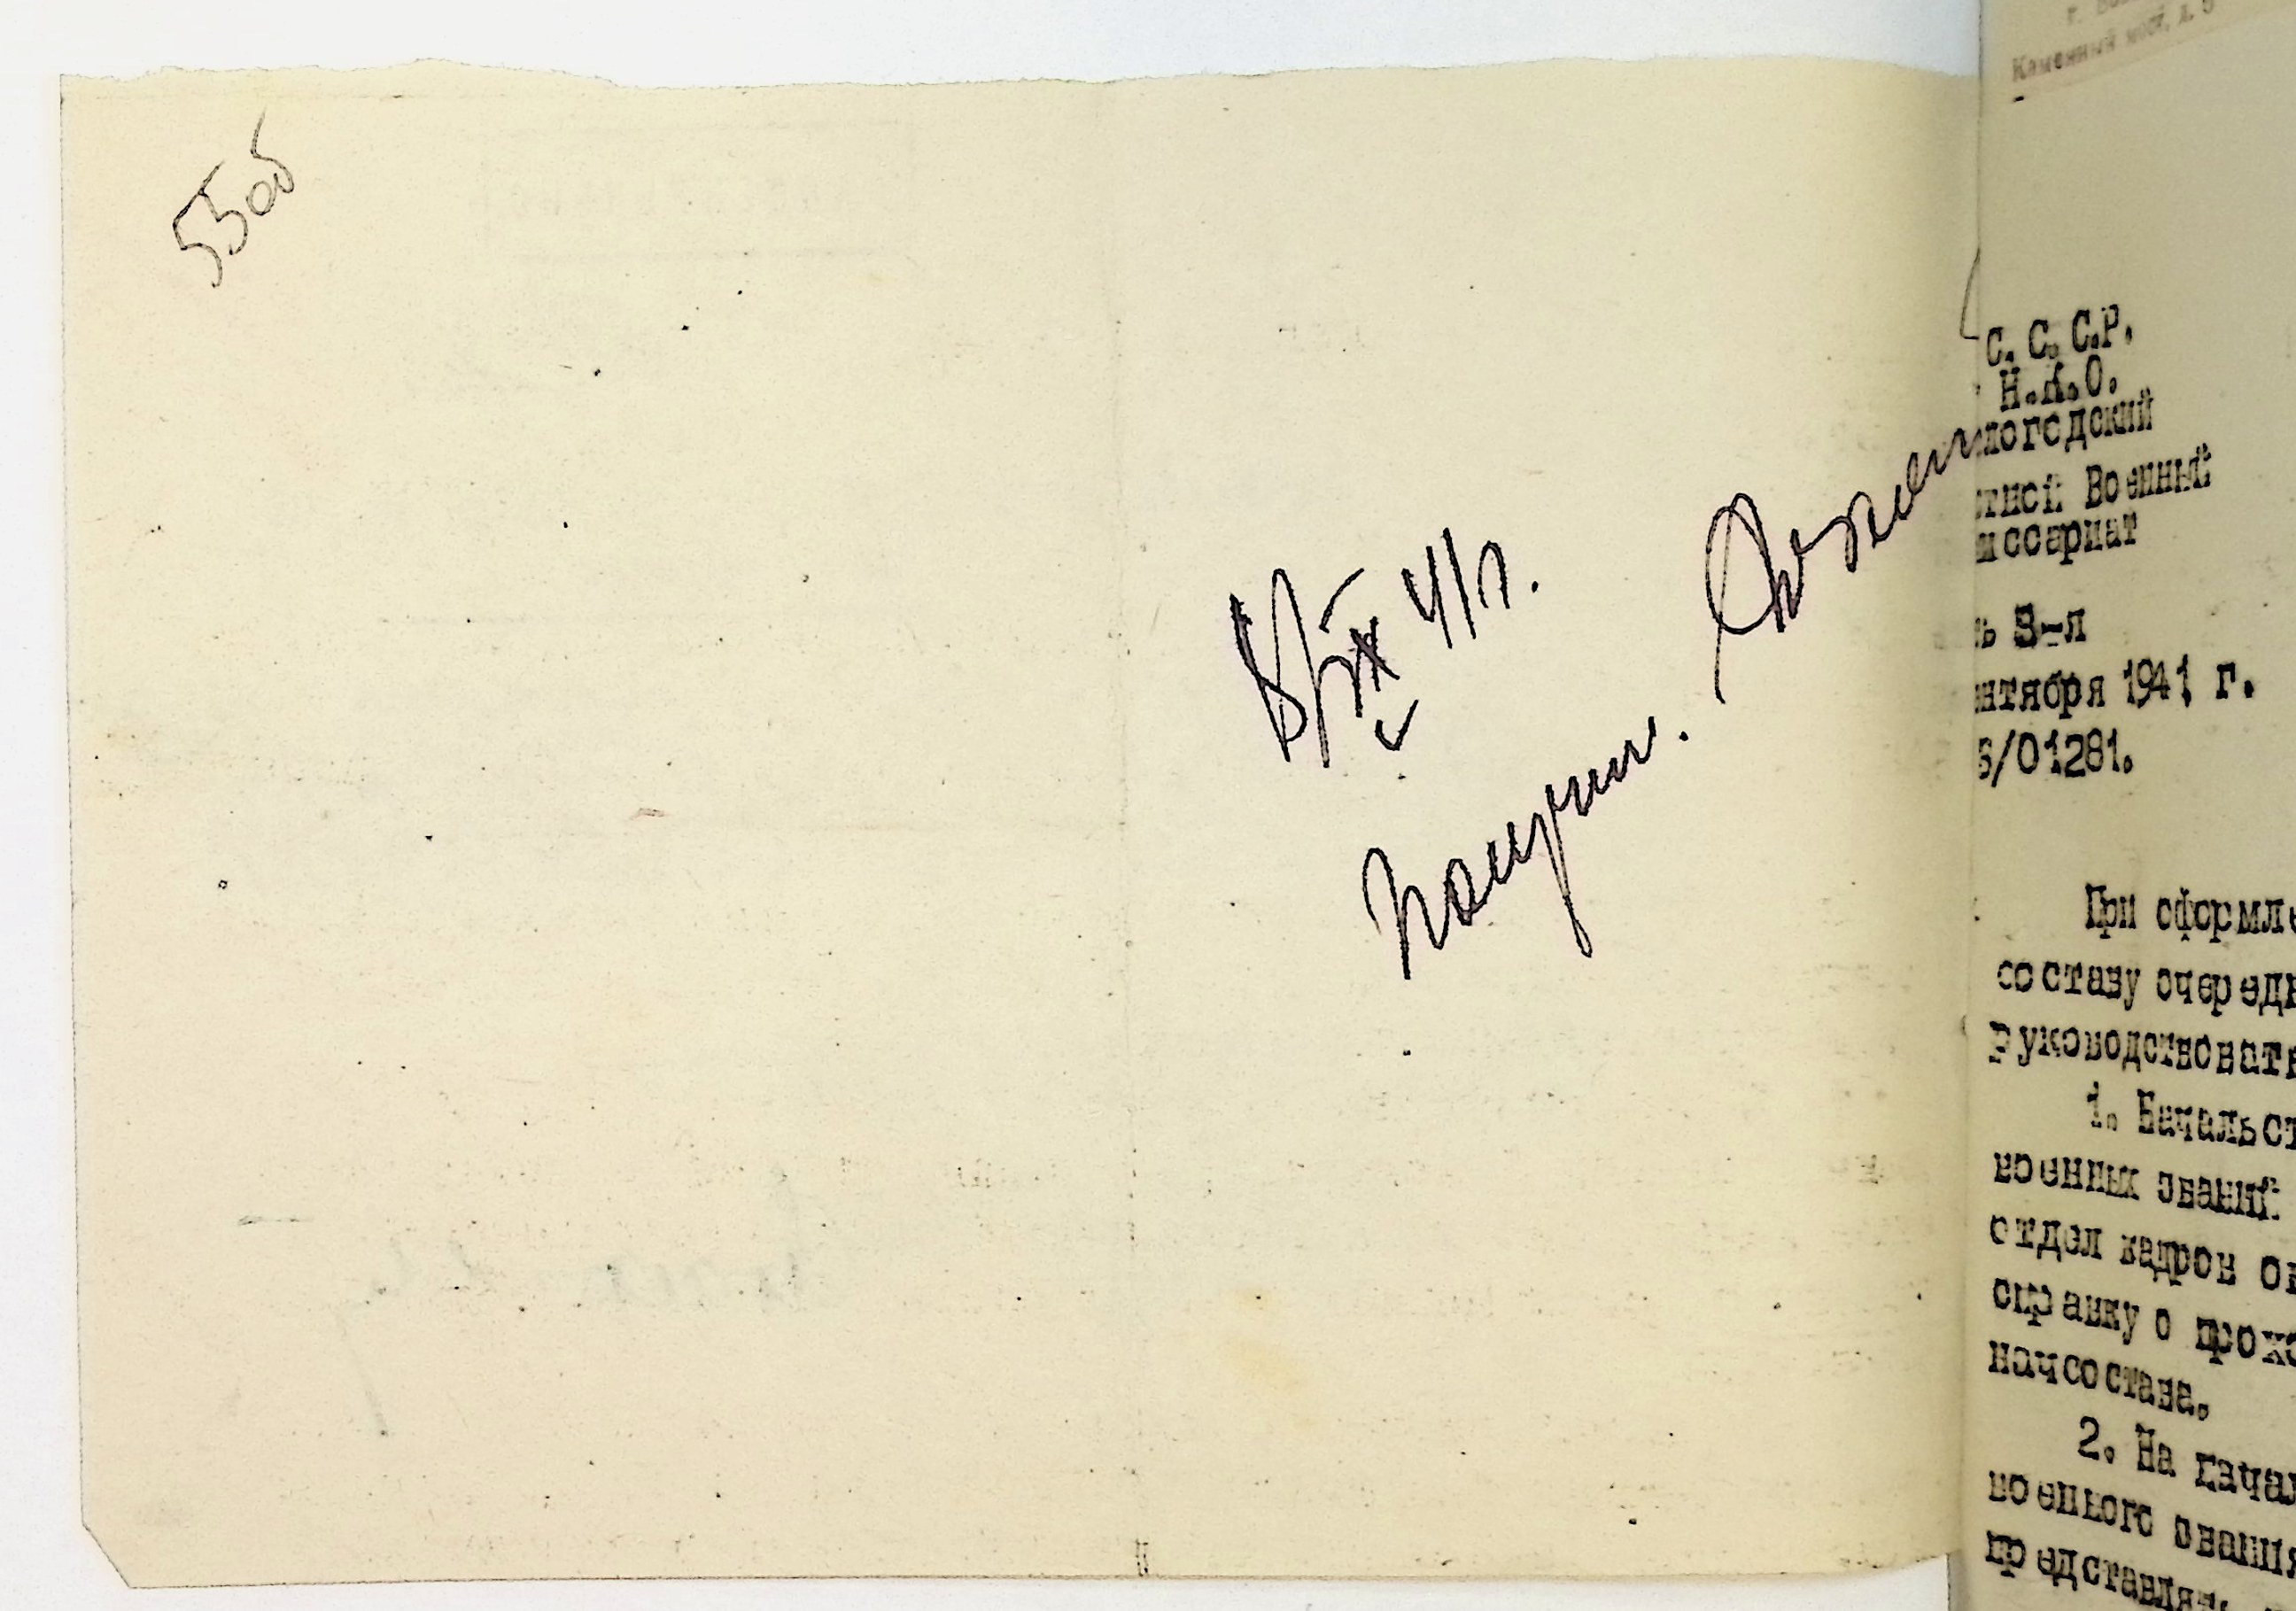 55об
8/IX 41 г.
Получил.
Каменный мост, д. 5
С. С. С.Р.
Н.К.О.
логодский
стной Военный
иссариат
ь 3-л
нтября 1941 г.
6/01281.
При оформле
составу очередн
руководствоват
1. Начальст
военных званий
отдел кадров о
справку о прохо
начсостава.
2. На начал
военного звания
представлят